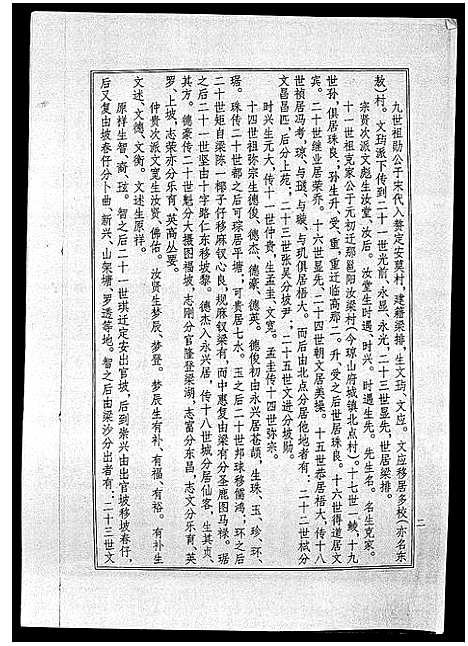 九世祖勋公于宋代入赘定安莫村，建籍梁排，生文玙、文应。文应移居多校（亦名东
敖）村。文玙派下传到二十一世光前、永显、永光，二十三世显先，世居梁排。
宗贵次派文彪生汝堂、汝后。汝堂生时遇、时兴。时遇生先。先生名。名生克家。
十一世祖克家公于元初迁那邕阳汝梁村（今琼山府城镇北点村）。十七世一峻，十九
世孙，俱居珠良；孙生升、受、重，重迁临高那二。升、受之后世居珠良。十六世得道居文
宾。二十世继业居荣乔。十六世显先、二十四世朝文居美操。十五世恭居梧大，传十八
世祯居冯考，琼、与瑅、与璇、与玑俱居梧大。而后由北点分居他地者有：二十二世栻分
文昌昌匹，后分上苑；二十三世张吴分坡尹；二十五世文进分坡勋。
时兴生元大，传十一世仲贵，生孟圭、文宽。孟圭传十四世弥宗。
十四世祖弥宗生德俊、德杰、德豪、德英。德俊初由永兴居苍颉，生珠、玉、珍、环、
琚。珠传二十世都之后可琮居平塘；可贵居七水。玉之后二十世邦球移儒鸿；环之后
二十世矩自梁陈一樑子仔移麻钗心良，规麻钗梁有，而中惠复由梁有分圣鹿图马樑。琚
之后二十一世坚由十字路仁东移坡黎。德杰入永兴居，传十八世城分居仙客，生其贞、
其方。德豪传二十世魁分大摄图福坡，志刚分官隆登梁湖，志富分东昌，志文分乐育、英
罗、上坡，志荣亦分乐育、英高丛要。
仲贵次派文宽生汝贤、佛佑。汝贤生梦辰、梦登。梦辰生有补、有福、有裕。有补生
文述、文德、文衡。文述生原祥。
原祥生智、裔、玹。智之后二十一世琪迁定安出官坡，后到崇兴由出官坡移坡春仔，
后又复由坡春仔分卜曲、新兴、山架塘、罗透等地。智之后由梁沙分出者有：二十三世文
二